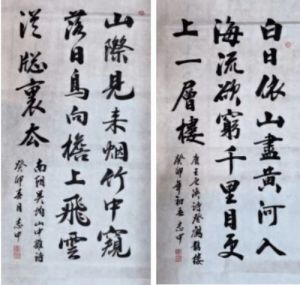 山際見来烟竹中窺
落日鳥向檐上飛雲
從窓裏出
南朝吳均山中雜詩
癸卯春月志中
白日依山盡黄河入
海流欲窮千里目更
上一層樓
唐王之渙詩登鸛鵲樓
癸卯年初志中